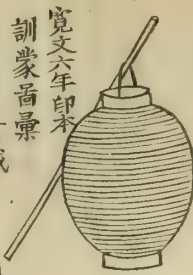 寛文六年印本
訓蒙啚彙